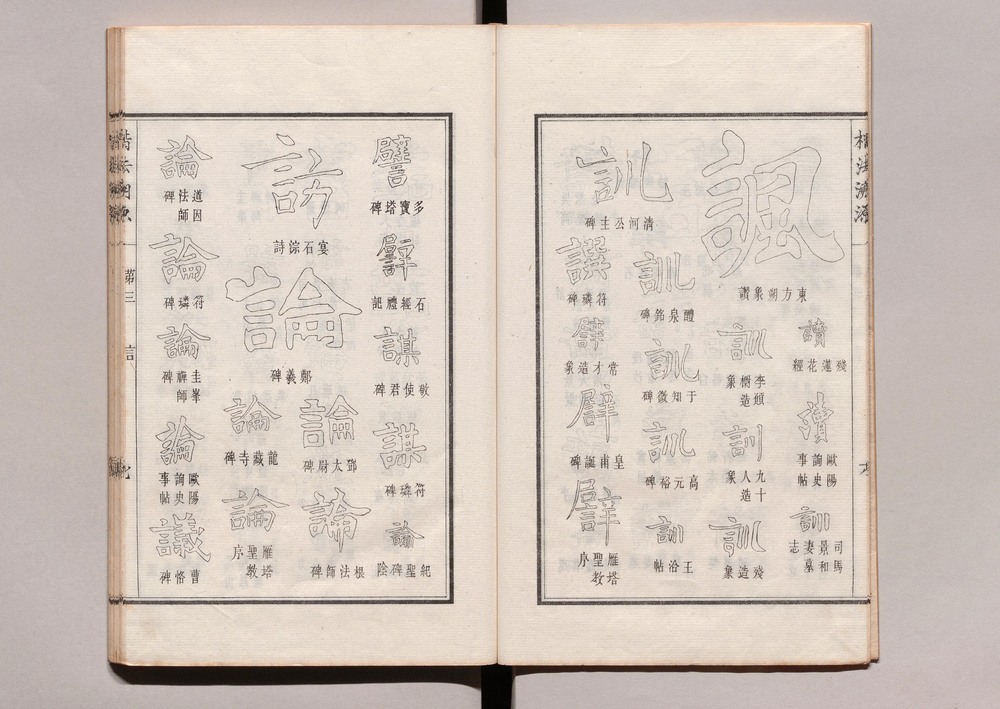 諷
東方朔象讚
讀
殘蓮花經
讀
歐陽詢史事帖
訓
司馬景和妻墓志
訓
李頠櫥造象
訓
九十人造象
訓
殘造象
訓
清河公主碑
訓
醴泉銘碑
訓
于知微碑
訓
高元裕碑
訓
王洽帖
譔
符璘碑
譬
常才造象
譬
皇甫誕碑
譬
雁塔聖教序
譬
多寶塔碑
譬
石經禮記
謀
敬使君碑
謀
符璘碑
論
紀聖碑陰
訪
宴石淙詩
論
鄭羲碑
論
鄧太尉碑
論
根法師碑
論
龍藏寺碑
論
雁塔聖教序
論
道因法師碑
論
符璘碑
論
圭峯禪師碑
論
歐陽詢史事帖
議
曹恪碑
第三
言